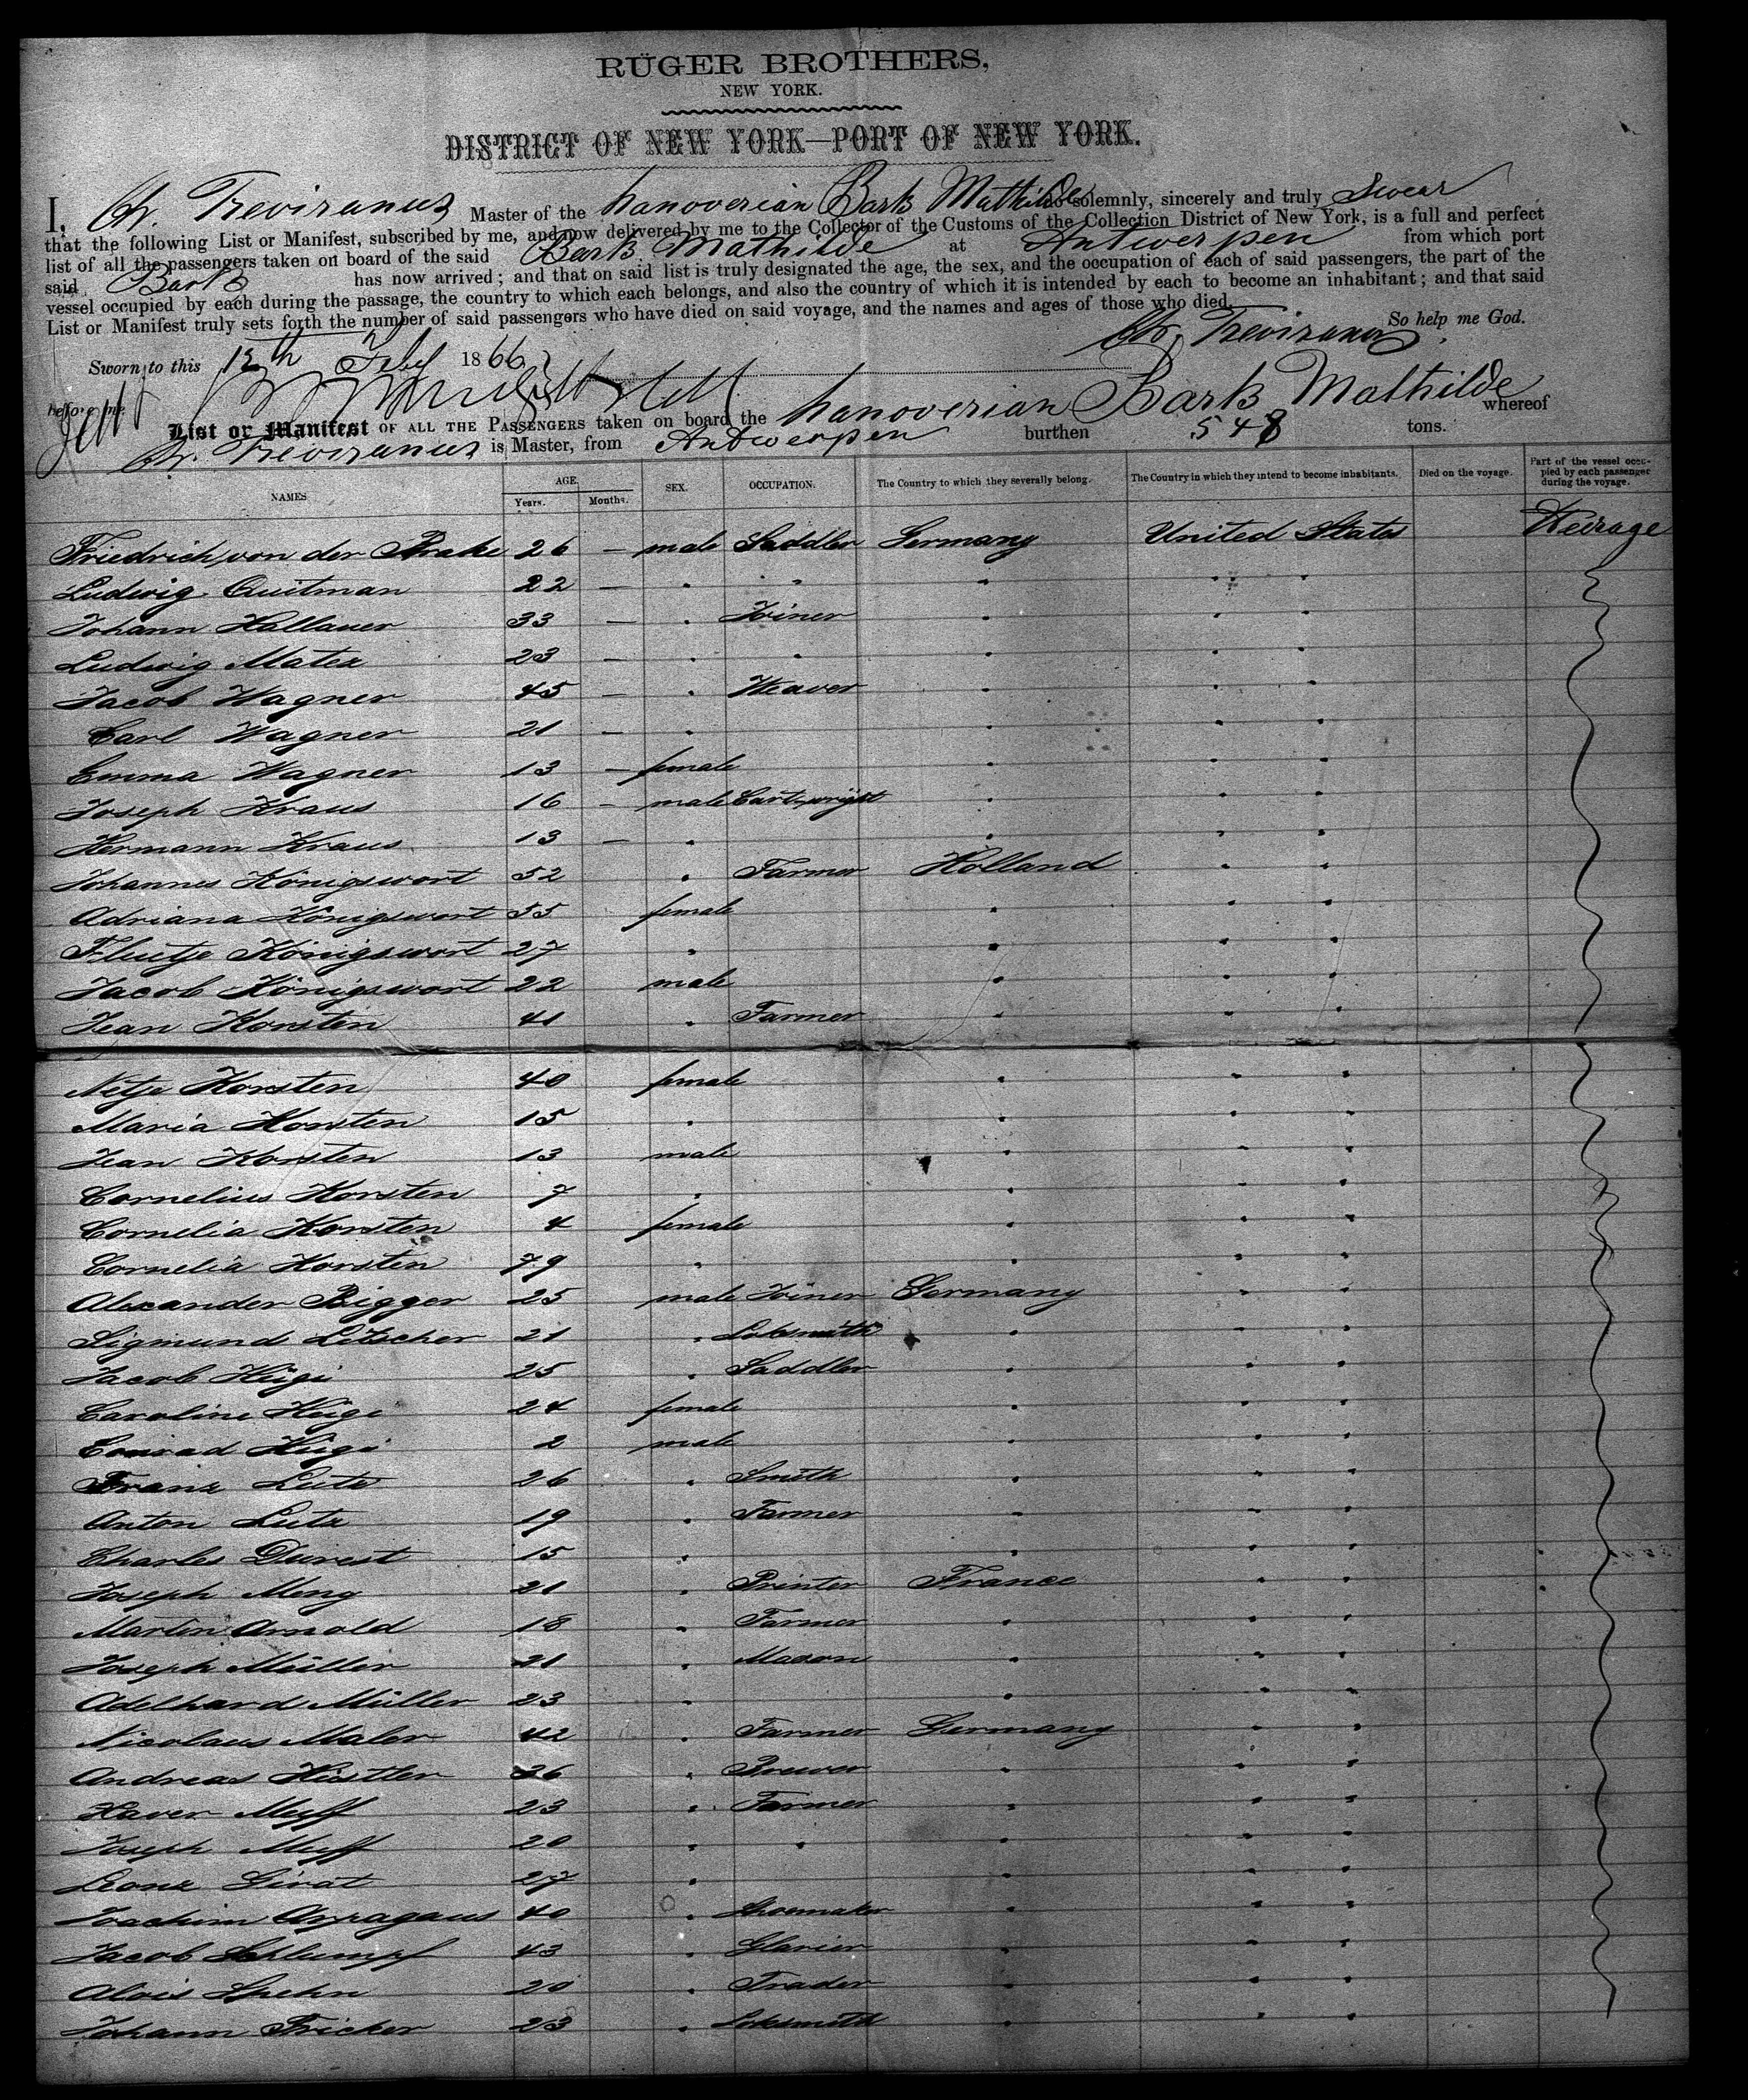 RÜGER BROTHERS,
NEW YORK.
DISTRICT OF NEW YORK—PORT OF NEW YORK.
I, Chr. Treviranus Master of the hanoverian Bark Mathilde do solemnly, sincerely and truly Swear
that the following List or Manifest, subscribed by me, and now delivered by me to the Collector of the Customs of the Collection District of New York, is a full and perfect
list of all the passengers taken on board of the said Bark Mathilde at Antwerpen from which port
said Bark has now arrived; and that on said list is truly designated the age, the sex, and the occupation of each of said passengers, the part of the
vessel occupied by each during the passage, the country to which each belongs, and also the country of which it is intended by each to become an inhabitant; and that said
List or Manifest truly sets forth the number of said passengers who have died on said voyage, and the names and ages of those who died.
So help me God.
Chr. Treviranus
Sworn to this 12th Feby 1866
before me
List or Manifest OF ALL THE PASSENGERS taken on board the hanoverian Bark Mathilde whereof
Chr. Treviranus is Master, from Antwerpen burthen 548 tons.
NAMES AGE. Years. Months. SEX. OCCUPATION. The Country to which they severally belong. The Country in which they intend to become inhabitants. Died on the voyage. Part of the vessel occupied by each passenger during the voyage.
Friedrich von der Brake 26 — male Saddler Germany United States
Ludwig Quitman 22 — " " " " "
Johann Hallauer 33 — " Joiner " " "
Ludwig Matex 23 — " " " " "
Jacob Wagner 45 — " Weaver " " "
Carl Wagner 21 — " " " "
Emma Wagner 13 — female " " "
Joseph Kraus 16 — male Cartwright " " "
Hermann Kraus 13 — " " " "
Johannes Königswort 52 " Farmer Holland " "
Adriana Königswort 55 female " " "
Königswort 27 " " " "
Jacob Königswort 22 male " " "
Jean Korsten 41 " Farmer " " "
Netje Korsten 40 female " " "
Maria Korsten 15 " " " "
Jean Korsten 13 male " " "
Cornelius Korsten 7 " " " "
Cornelia Korsten 4 female " " "
Cornelia Korsten 79 " " " "
Alexander Bigger 25 male Joiner Germany " "
Sigmund Lötscher 21 " Loksmith " " "
Jacob Hügi 25 " Saddler " " "
Caroline Hügi 24 female " " "
Conrad Hügi 2 male " " "
Franz Lutz 26 " Smith " " "
Anton Lutz 19 " Farmer " " "
Charles Durest 15 " " " "
Joseph Meng 21 " Printer France " "
Martin Arnold 18 " Farmer " " "
Joseph Müller 21 " Mason " " "
Adelhard Müller 23 " " " "
Nicolaus Maler 42 " Farmer Germany " "
Andreas Histler 26 " Brewer " " "
Xaver Meyff 23 " Farmer " " "
Joseph Meyff 20 " " " " "
Leonz Girat 27 " " " "
Joachim Arpagaus 40 " Shoemaker " " "
Jacob Schlumpf 43 " Glazier " " "
Alois Spehn 20 " Trader " " "
Johann Fricker 23 " Loksmith " " "